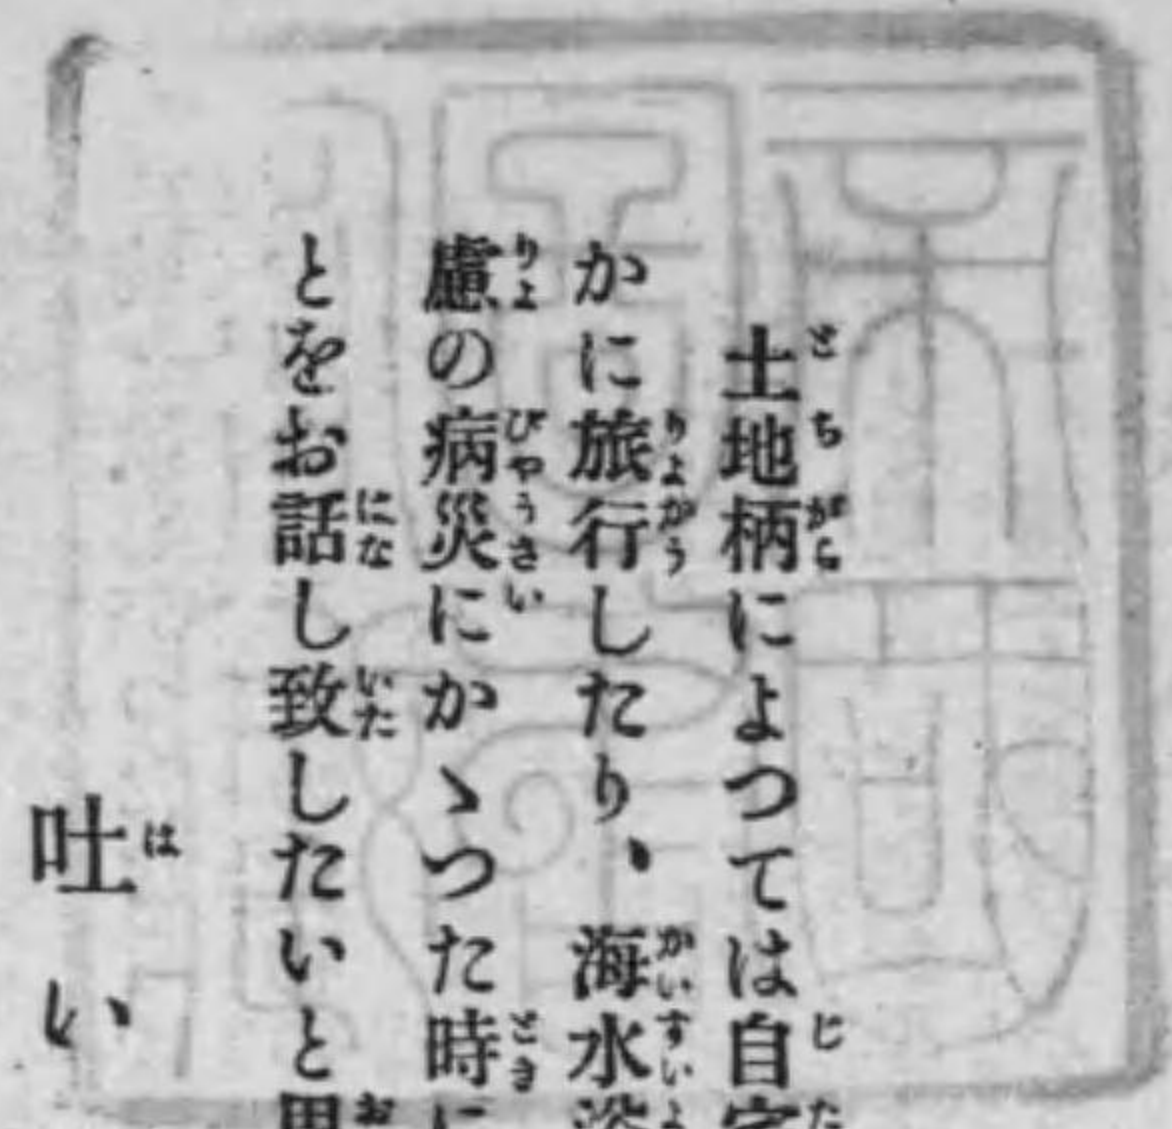 土地柄によつては自宅
かに旅行したり、海水浴
慮の病災にかゝつた時に
とをお話し致したいと思
吐い